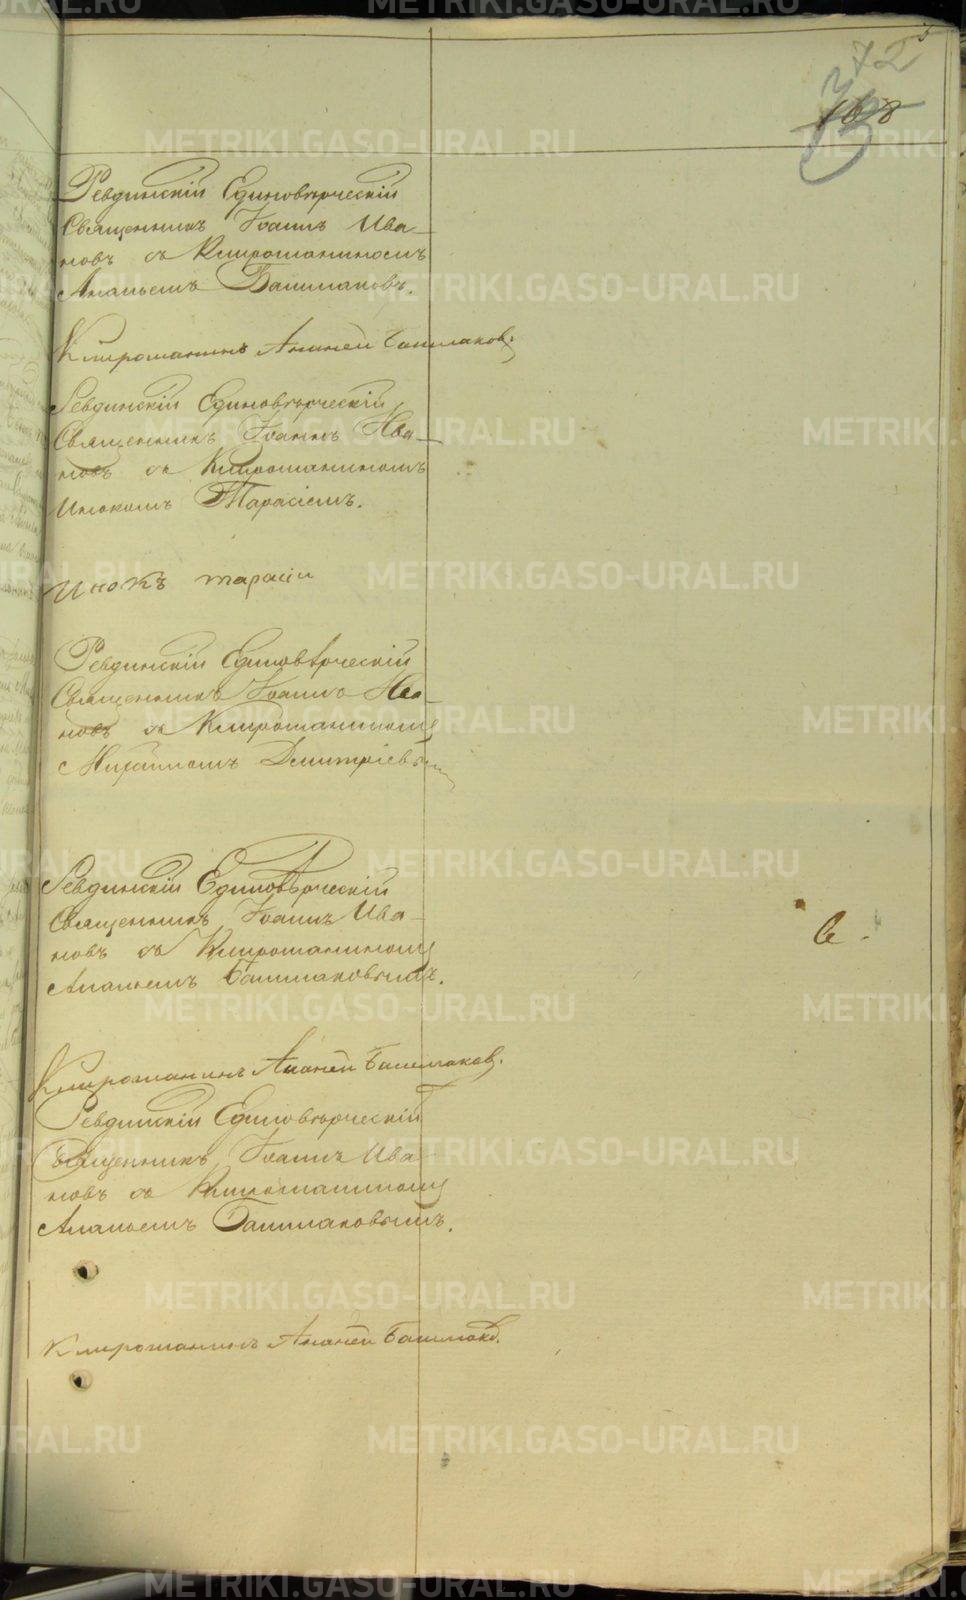 5
72
168
Ревдинскій Единовѣрческій
Священникъ Іоаннъ Ива-
новъ съ Клирошаниномъ
Ананьемъ Башмаковъ.
Клирошанинъ Ананей Башмаковъ
Ревдинскій Единовѣрческій
Священникъ Іоаннъ Ива-
новъ съ Клирошаниномъ
Инокомъ Тарасіемъ.
Инокъ тарасіи
Ревдинскій Единовѣрческій
Священникъ Іоаннъ Ива-
новъ съ Клирошаниномъ
Дмитріевымъ
Ревдинскій Единовѣрческій
Священникъ Іоаннъ Ива-
новъ съ Клирошаниномъ
Ананьемъ Башмаковымъ.
Клирошанинъ Ананей Башмаков.
Ревдинскій Единовѣрческій
Священникъ Іоаннъ Ива-
новъ съ Клирошаниномъ
Ананьемъ Башмаковымъ.
Клирошанинъ Ананей Башмаков.
METRIKI.GASO-URAL.RU